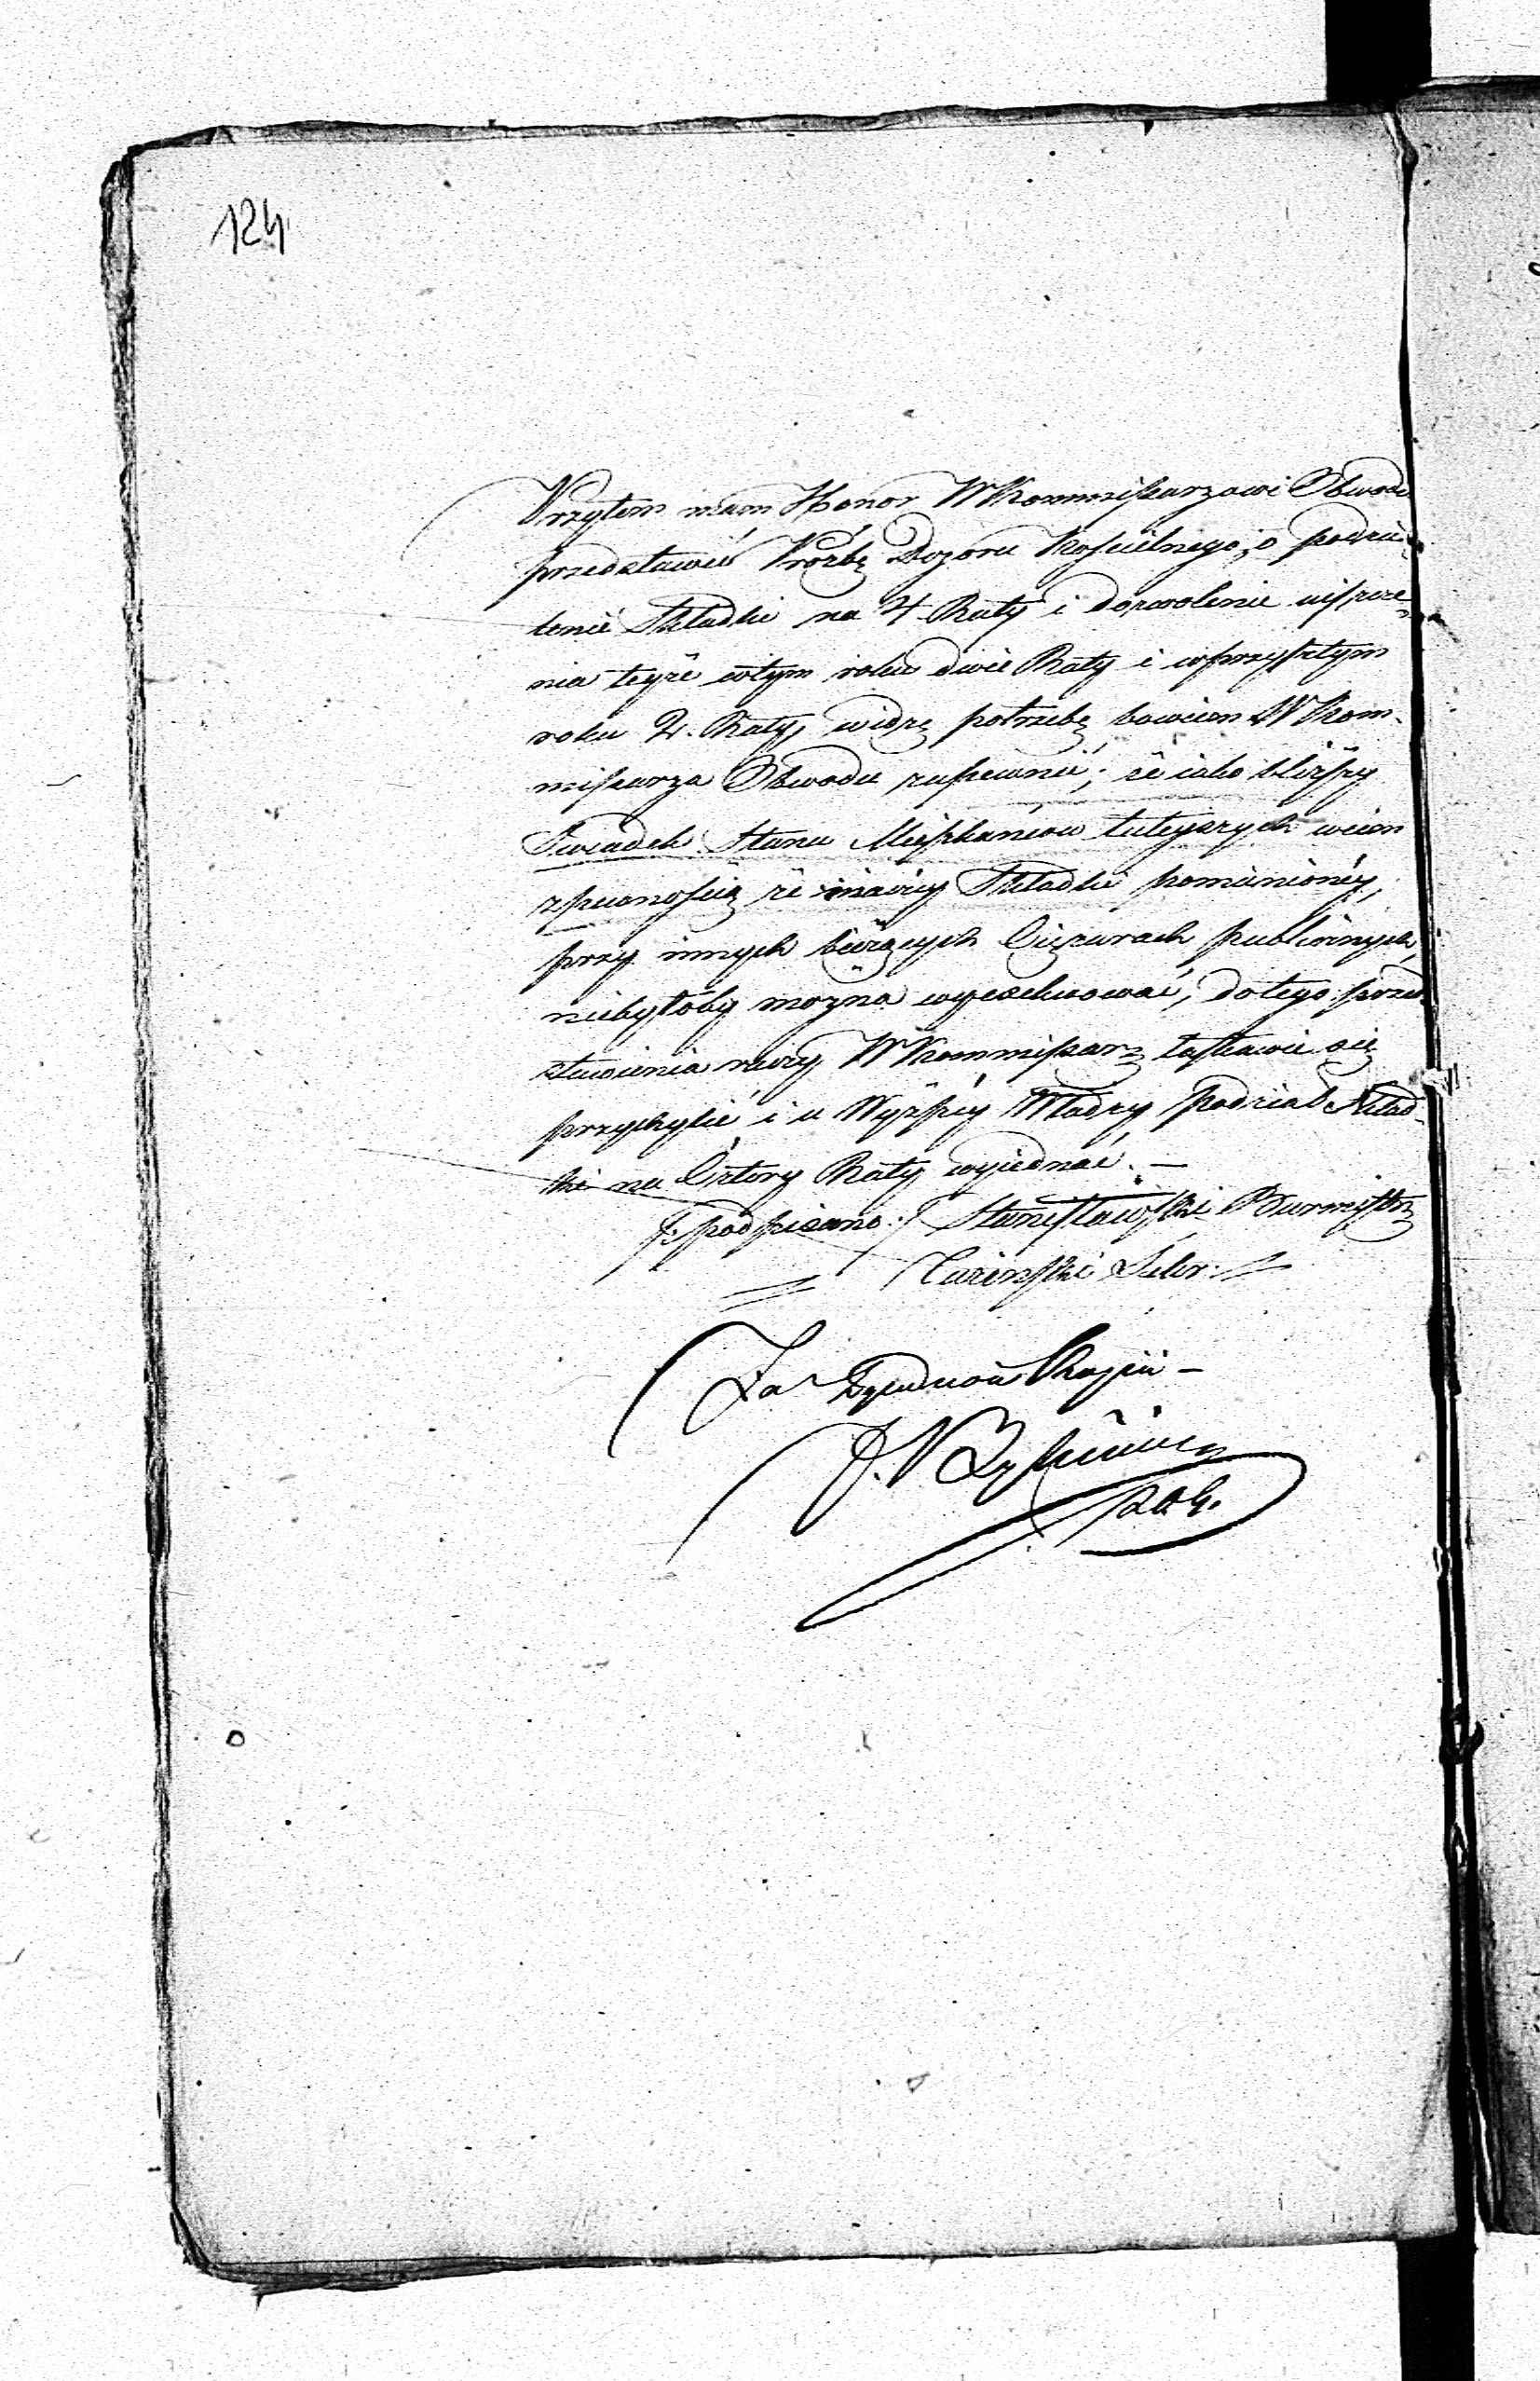 124
Przytem mam Honor WKommissarzowi Obwodu
przedstawić Prożbę Dozoru Kościelnego, o podzie-
lenie Składki na 4 Raty i dozwolenie uiszcze-
nia teyże wtym roku dwie Raty i wprzyszłym
roku 2. Raty, widzę potrzebę bowiem WKom-
missarza Obwodu zapewnić; że iako bliższy
Swiadek Stanu Mieszkańców tuteyszych wiem
zpewnością że inaczey Składki pomienionéy,
przy innych bieżących Ciężarach publicznych,
niebyłoby można wyexekwować, do tego przed-
stawienia raczy WKommissarz łaskawie się
przychylić i u Wyższéy Władzy podział Skład-
ki na Cztery Raty wyiednać. —
/: podpisano :/ Stanisławski Burmistrz
Sekr.
Za Zgodność Kopii —
J. N.